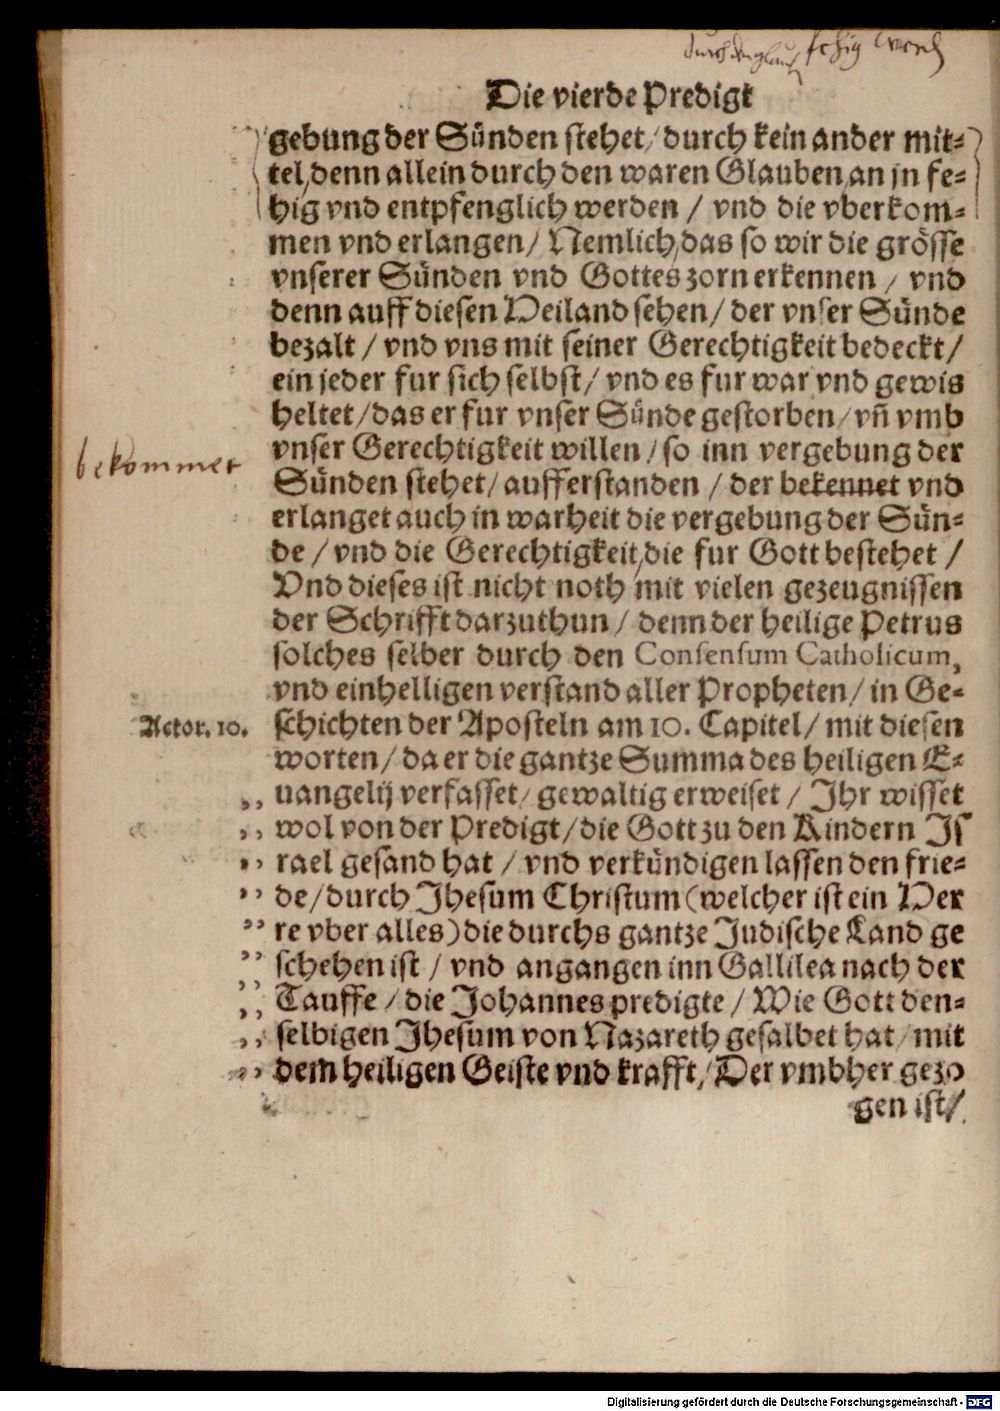 durch den glaub fehig werd
Die vierde Predigt
gebung der Sünden stehet / durch kein ander mit-
tel, denn allein durch den waren Glauben, an jn fe-
hig vnd entpfenglich werden / vnd die vberkom-
men vnd erlangen / Nemlich, das so wir die grösse
vnserer Sünden vnd Gottes zorn erkennen / vnd
denn auff diesen Heiland sehen / der vnser Sünde
bezalt / vnd vns mit seiner Gerechtigkeit bedeckt /
ein jeder fur sich selbst / vnd es fur war vnd gewis
heltet / das er fur vnser Sünde gestorben / vñ vmb
vnser Gerechtigkeit willen / so inn vergebung der
bekommet
Sünden stehet / aufferstanden / der bekennet vnd
erlanget auch in warheit die vergebung der Sün-
de / vnd die Gerechtigkeit, die fur Gott bestehet /
Vnd dieses ist nicht noth mit vielen gezeugnissen
der Schrifft darzuthun / denn der heilige Petrus
solches selber durch den Consensum Catholicum,
vnd einhelligen verstand aller Propheten / in Ge-
Actor. 10. schichten der Aposteln am 10. Capitel / mit diesen
worten / da er die gantze Summa des heiligen E-
,, uangelij verfasset / gewaltig erweiset / Jhr wisset
,, wol von der Predigt / die Gott zu den Kindern Js
,, rael gesand hat / vnd verkündigen lassen den frie-
,, de / durch Jhesum Christum (welcher ist ein Her
,, re vber alles) die durchs gantze Judische Land ge
,, schehen ist / vnd angangen inn Gallilea nach der
,, Tauffe / die Johannes predigte / Wie Gott den-
,, selbigen Jhesum von Nazareth gesalbet hat / mit
,, dem heiligen Geiste vnd krafft / Der vmbher gezo
gen ist /
Digitalisierung gefördert durch die Deutsche Forschungsgemeinschaft - DFG